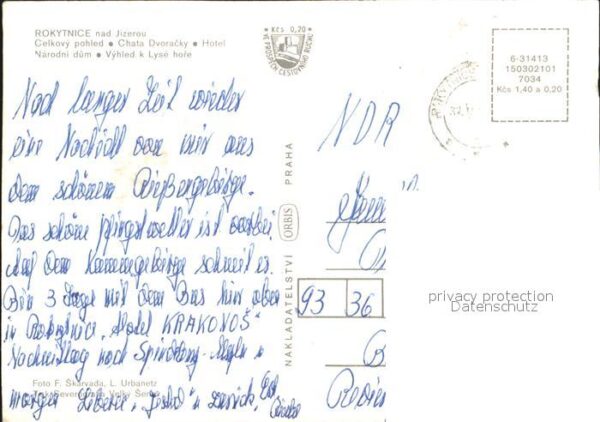 ROKYTNICE nad Jizerou
Celkový pohled • Chata Dvoračky • Hotel
Národní dům • Výhled k Lysé hoře
Kčs 0,20
VE PROSPĚCH CESTOVNÍHO RUCHU
6-31413
150302101
7034
Kčs 1,40 a 0,20
Nach langer Zeit wieder
eine Nachricht von mir aus
dem schönen Riesengebirge.
Das schöne Pfingstwetter ist vorbei.
Auf dem Kammgebirge schneit es.
Bin 3 Tage mit dem Bus hier oben
in Rokytnice, Hotel KRAKONOŠ"
Nachmittag nach Spindler
morgen Liberec "Ješted" u zurück.
NDR
93 36
NAKLADATELSTVÍ ORBIS PRAHA
Foto F. Skařvada, L. Urbánetz
privacy protection
Datenschutz